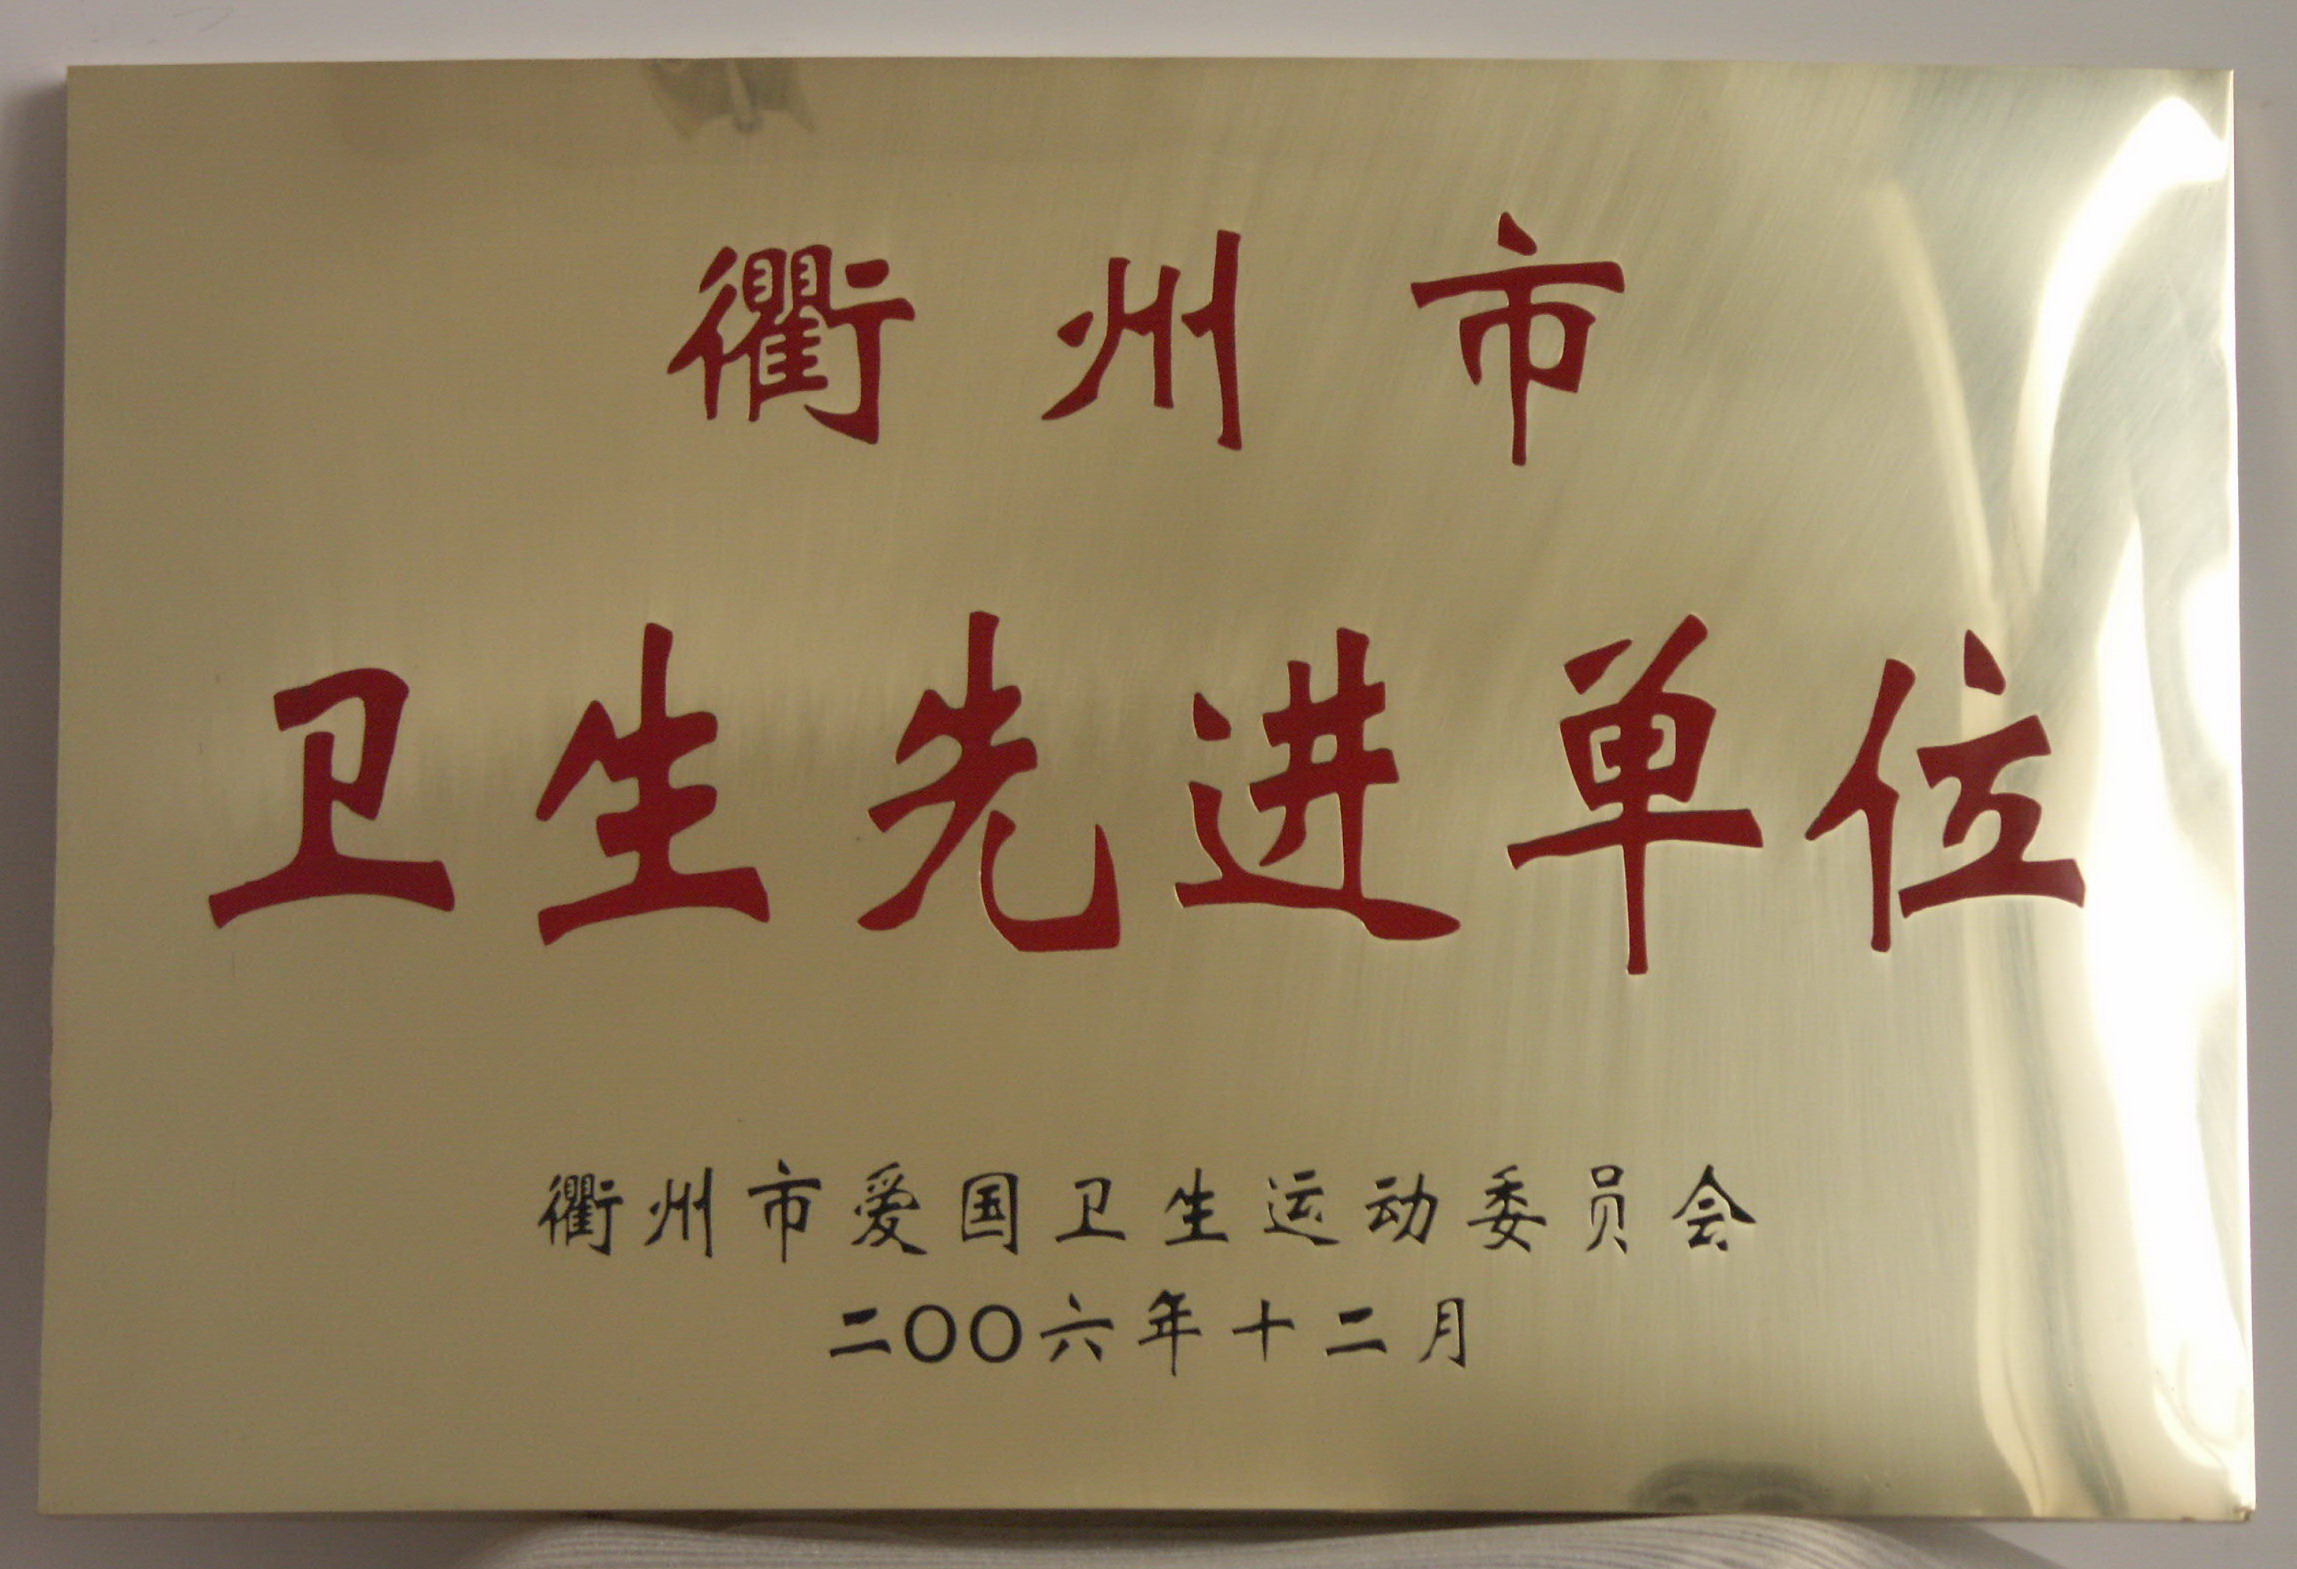 衢州市
卫生先进单位
衢州市爱国卫生运动委员会
二〇〇六年十二月